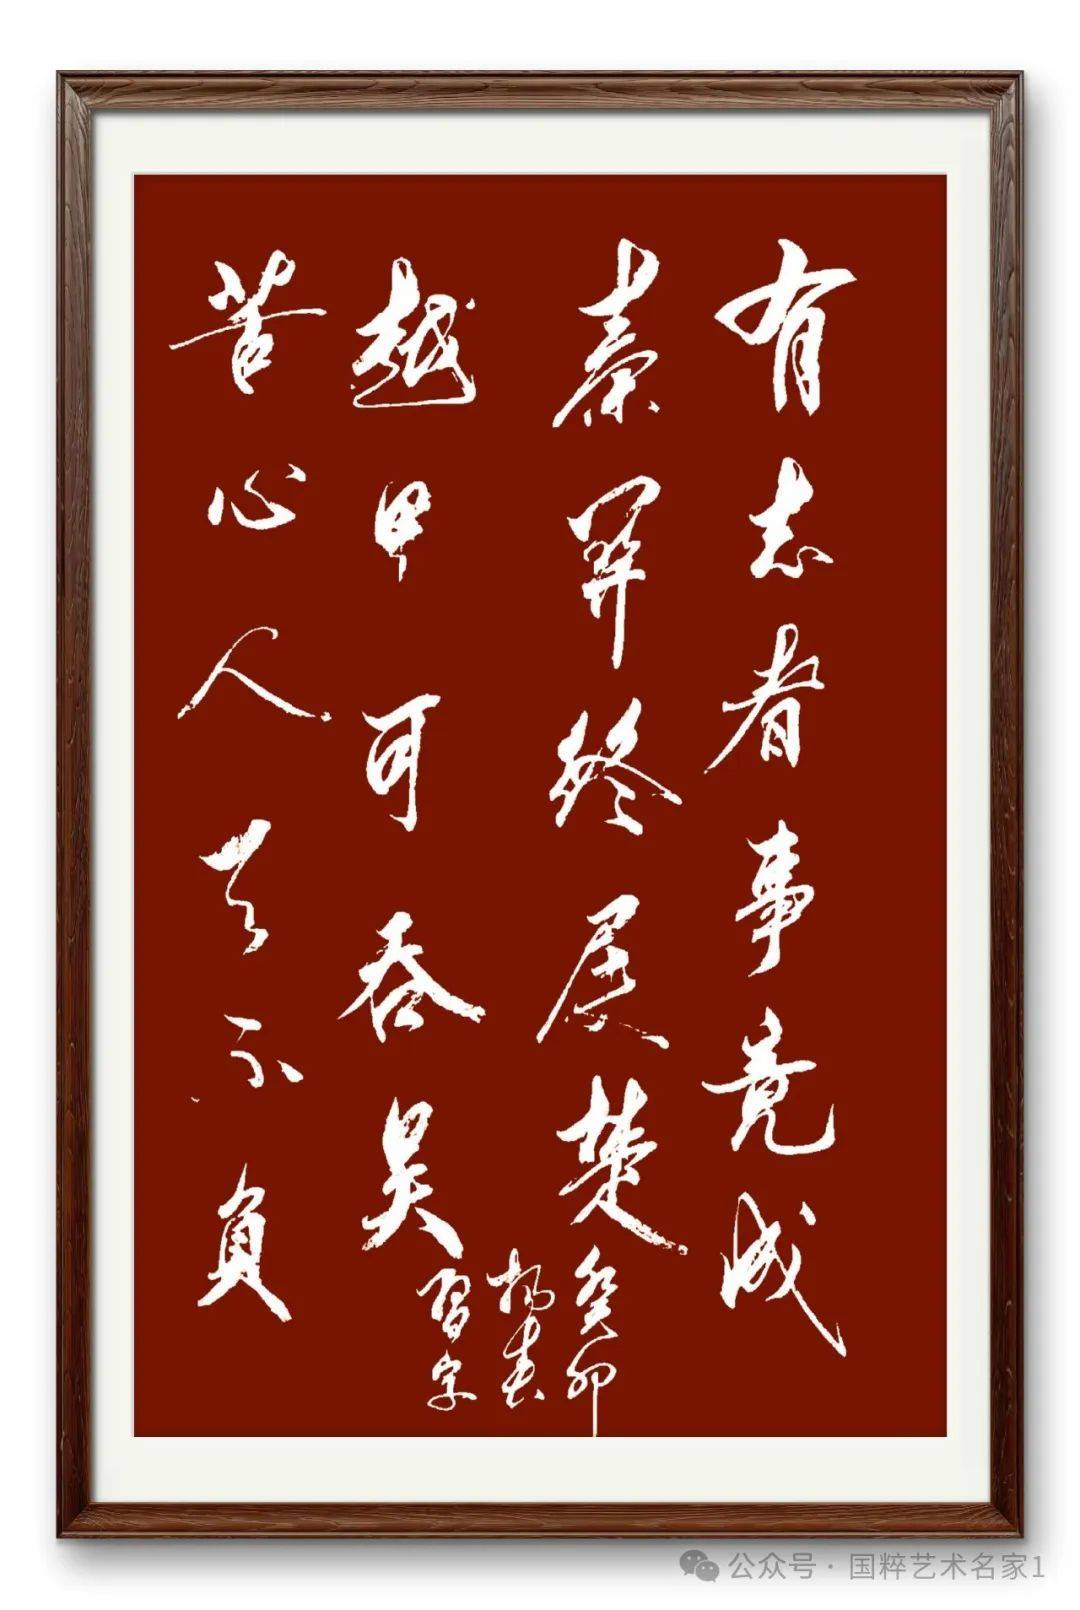 有志者事竟成
秦關終屬楚
越甲可吞吴
苦心人天不負
癸卯
杨春
習字
公众号 · 国粹艺术名家1